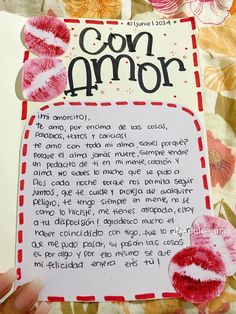 01 junio 1 2024
Con
Amor
¡mi amorcito!,
te amo, por encima de las cosas,
palabras, textos y caricias!
te amo con toda mi alma, sabes porque?
porque el alma jamás muere, siempre tendré
un pedacito de ti en mi mente, corazón y
alma, No sabes lo mucho que le pido a
Dios cada noche porque nos permita seguir
juntos, que te cuide y proteja de cualquier
peligro, te tengo siempre en mente, no sé
como lo hiciste, me tienes atrapada, estoy
a tu disposición! agradezco mucho el
haber coincidido contigo, fue lo
que me pudo pasar, si pasan las cosas
es por algo y por ello mismo se que
mi felicidad entera eres tú!